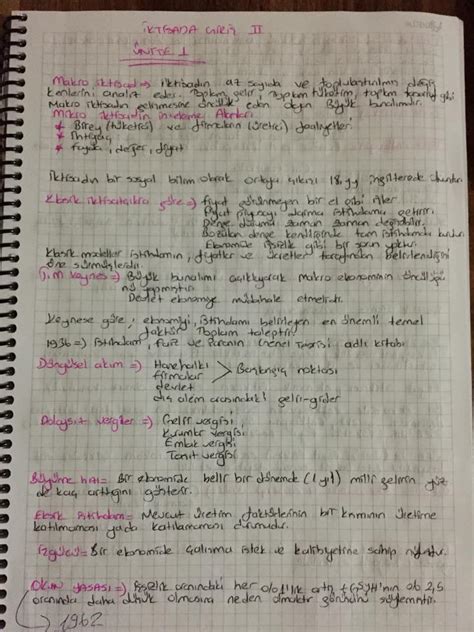 İKTİSADA GİRİŞ II
ÜNİTE 1
Makro iktisad => iktisadın az sayıda ve toplulaştırılmış değiş
kenlerini analiz eder. Toplam gelir, toplam tüketim, toplam tasarruf gibi
Makro iktisadın gelişmesine öncülük eden olgu Büyük bunalımdır.
Mikro iktisadın inceleme Alanları
* Birey (tüketici) ve firmaların (üretici) faaliyetleri
* İhtiyaç
* fayda, değer, fiyat
İktisadın bir sosyal bilim olarak ortaya çıkışı 18.yy ingilterede
Klasik iktisatçılara göre => fiyat görünmeyen bir el gibi işler
Piyasayı daima istihdama getirir.
Denge durumu zaman zaman değişebilir.
Bozulan denge kendiliğinde tam istihdamda
Ekonomide işsizlik gibi bir sorun yoktur.
Klasik modeller istihdamın, fiyatlar ve ücretler tarafından belirlendiğini
öne sürmüşlerdir.
J.M Keynes => Büyük bunalımı açıklayarak makro ekonominin öncülüğü
nü yapmıştır.
Devlet ekonomiye müdahale etmelidir.
Keynese göre; ekonomiyi, istihdamı belirleyen en önemli temel
faktör Toplam taleptir.
1936 => İstihdam, Faiz ve Paranın Genel Teorisi adlı kitabı
Döngüsel akım => Hane halkı
firmalar > noktası
devlet
dış alem arasındaki gelir-gider
Dolaysız vergiler => Gelir vergisi
Kurumlar vergisi
Emlak vergisi
vergisi
Büyüme hızı => Bir ekonomide belli bir dönemde (1 yıl) milli gelirin yüz
de kaç arttığını gösterir.
Eksik istihdam => Mevcut üretim faktörlerinin bir kısmının üretime
katılmaması yada katılamaması durumudur.
İşgücü => Bir ekonomide çalışma istek ve kabiliyetine sahip nüfustur.
OKUN YASASI => İşsizlik oranındaki her %1'lik artış, GSYH'nin % 2,5
oranında daha düşük olmasına neden olmaktadır söylemiştir.
1962